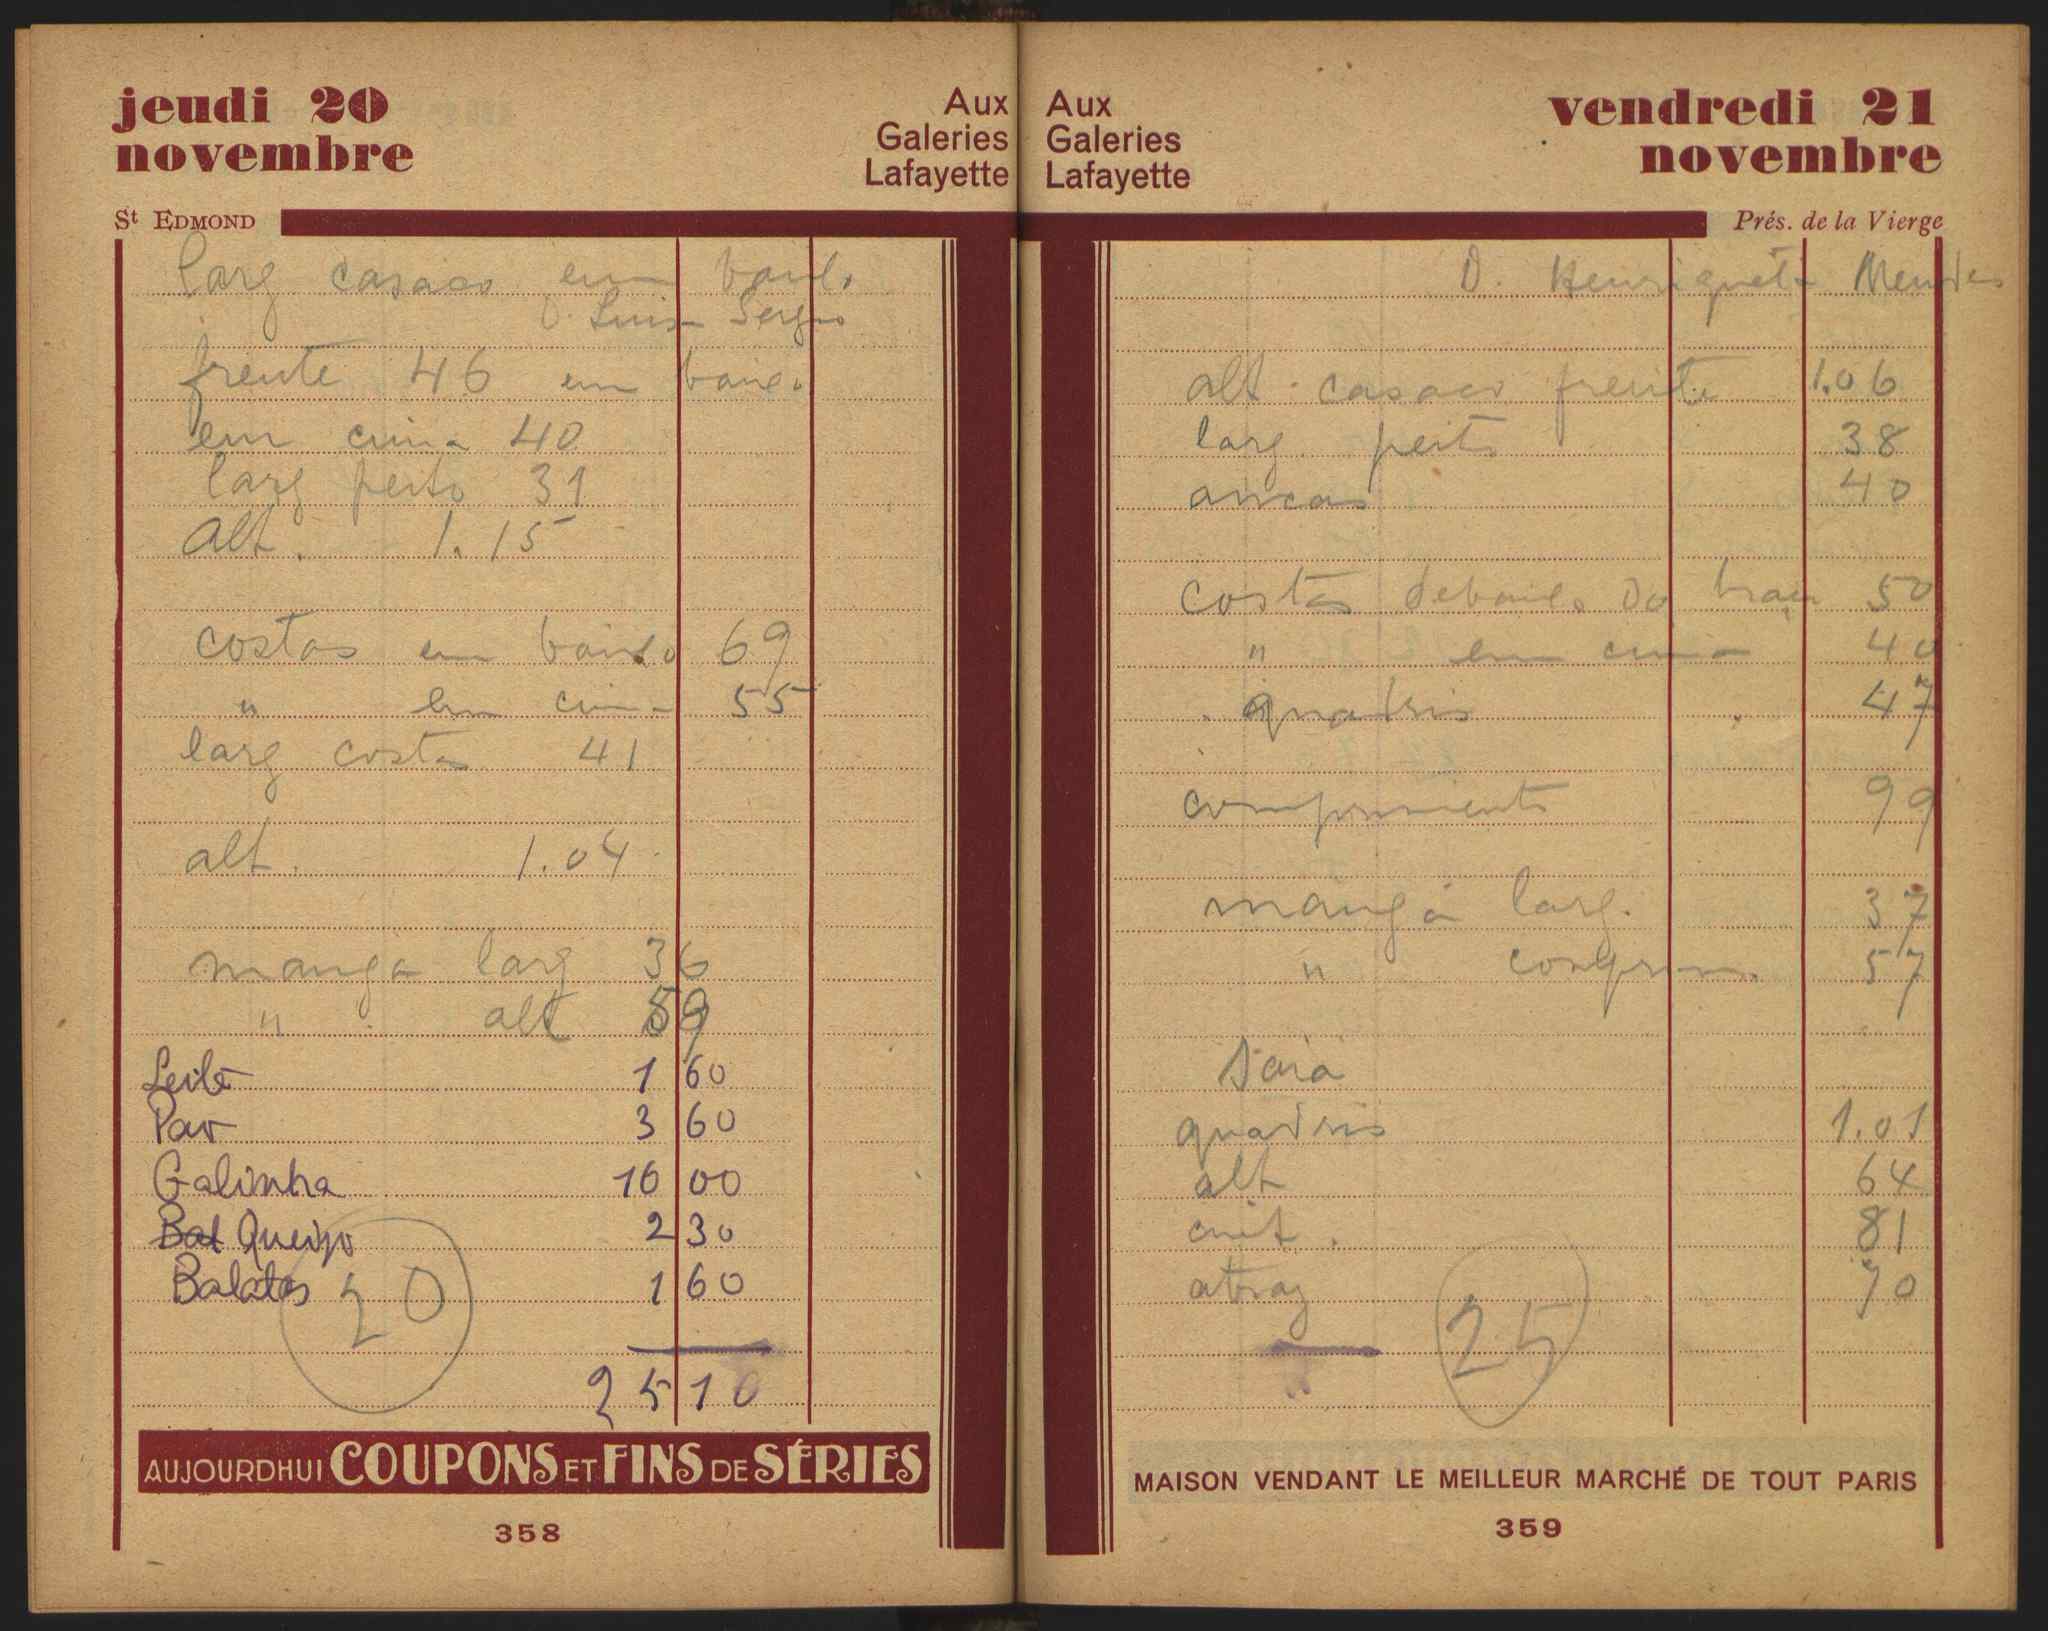 jeudi 20
novembre
Aux
Galeries
Lafayette
St EDMOND
larg casaco em baixo
D. Luisa Sergio
frente 46 em baixo
em cima 40
larg peito 31
alt. 1.15
costas em baixo 69
" em cima 55
larg costas 41
alt. 1.04
manga larg 36
" alt 59
Leite 1 60
Pao 3 60
Galinha 16 00
Bat Queijo 2 30
Batatas 1 60
20
25 10
AUJOURDHUI COUPONS ET FINS DE SÉRIES
358
Aux
Galeries
Lafayette
vendredi 21
novembre
Prés. de la Vierge
D. Henriqueta Mendes
alt. casaco frente 1.06
larg. peito 38
ancas 40
costas debaixo do braço 50
" em cima 40
" quadris 47
comprimento 99
manga larg. 37
" comprim. 57
saia
quadris 1.01
alt 64
cint. 81
atraz 70
25
MAISON VENDANT LE MEILLEUR MARCHÉ DE TOUT PARIS
359